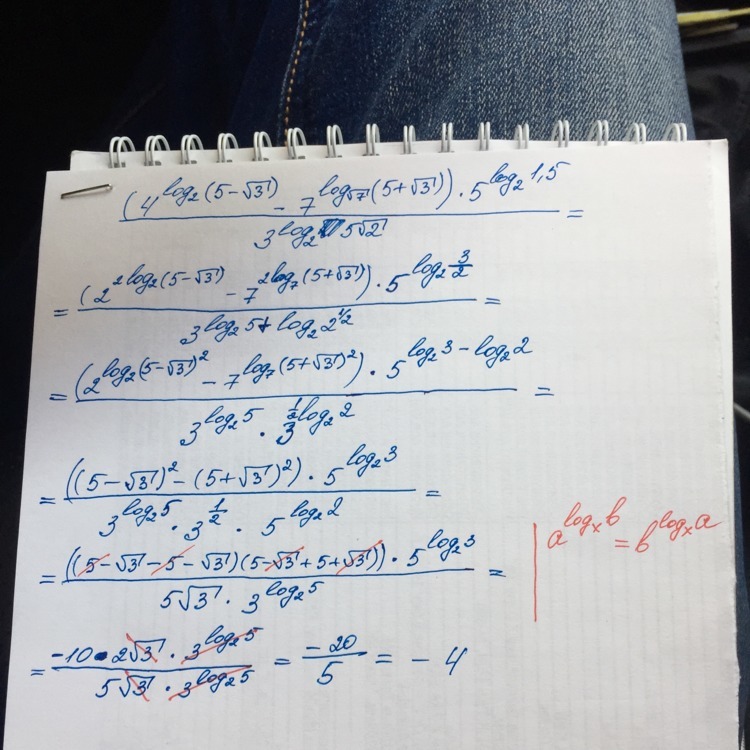 (4^log₂(5-√3) - 7^log_√7(5+√3)) · 5^log₂1,5 / 3^log₂5√2 =
= (2^2log₂(5-√3) - 7^2log₇(5+√3)) · 5^log₂3/2 / 3^log₂5+log₂2^1/2 =
= (2^log₂(5-√3)² - 7^log₇(5+√3)²) · 5^log₂3-log₂2 / 3^log₂5 · 3^1/2log₂2 =
= ((5-√3)² - (5+√3)²) · 5^log₂3 / 3^log₂5 · 3^1/2 · 5^log₂2 =
= ((5-√3-5-√3)(5-√3+5+√3)) · 5^log₂3 / 5√3 · 3^log₂5 =
a^logₓb = b^logₓa
= -10·2√3 · 3^log₂5 / 5√3 · 3^log₂5 = -20/5 = -4